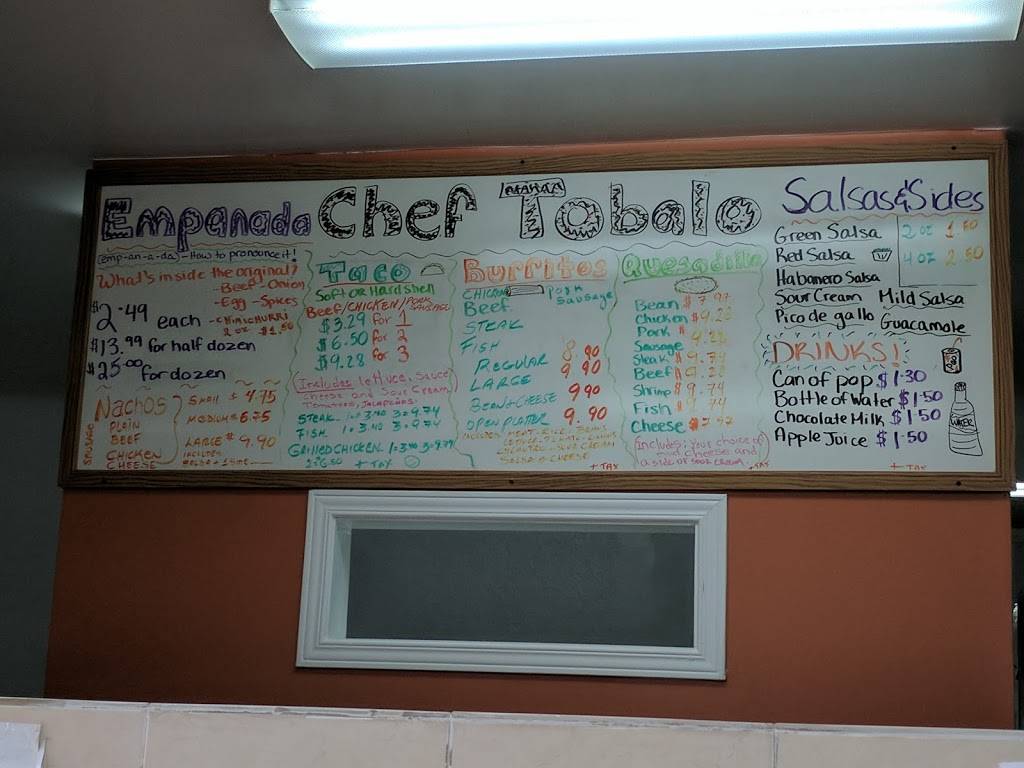 Chef Tobalo
Empanada
(emp-an-a-da) - How to pronounce it!
What's inside the original?
- Beef - Onion
- Egg - Spices
- CHIMICHURRI
2 oz $1.50
$2.49 each
$13.99 for half dozen
$25.00 for dozen
Nachos
PLAIN
BEEF
CHICKEN
CHEESE
SMALL $4.75
MEDIUM $6.75
LARGE $9.90
INCLUDES
Taco
Soft OR Hard shell
BEEF/CHICKEN/PORK SAUSAGE
$3.29 for 1
$6.50 for 2
$9.28 for 3
(Includes lettuce, sauce,
cheese and Sour Cream
Tomatoes, Jalapeños.
STEAK 1=3.40 3=9.74
FISH 1=3.40 3=9.74
GRILLED CHICKEN 1=3.40
2=6.50 + TAX
Burritos
CHICKEN
Pork Sausage
BEEF
STEAK
FISH
REGULAR 8.90
LARGE 9.90
BEAN & CHEESE 990
OPEN PLATTER 9.90
INCLUDES: MEAT, RICE, BEANS
SALSA & CHEESE
+ TAX
Quesadilla
Bean $7.97
Chicken $9.28
Pork $
Sausage 9.28
Steak $9.74
Beef $9.28
Shrimp $9.74
Fish $9.74
Cheese $7.97
Includes: your choice of
meat, cheese and
a side of sour cream
+ TAX
Salsas & Sides
Green Salsa
Red Salsa
2 oz 1.50
4 oz 2.50
Habanero Salsa
Sour Cream Mild Salsa
Pico de gallo Guacamole
DRINKS!
Can of pop $1.30
Bottle of Water $1.50
Chocolate Milk $1.50
Apple Juice $1.50
WATER
+ TAX